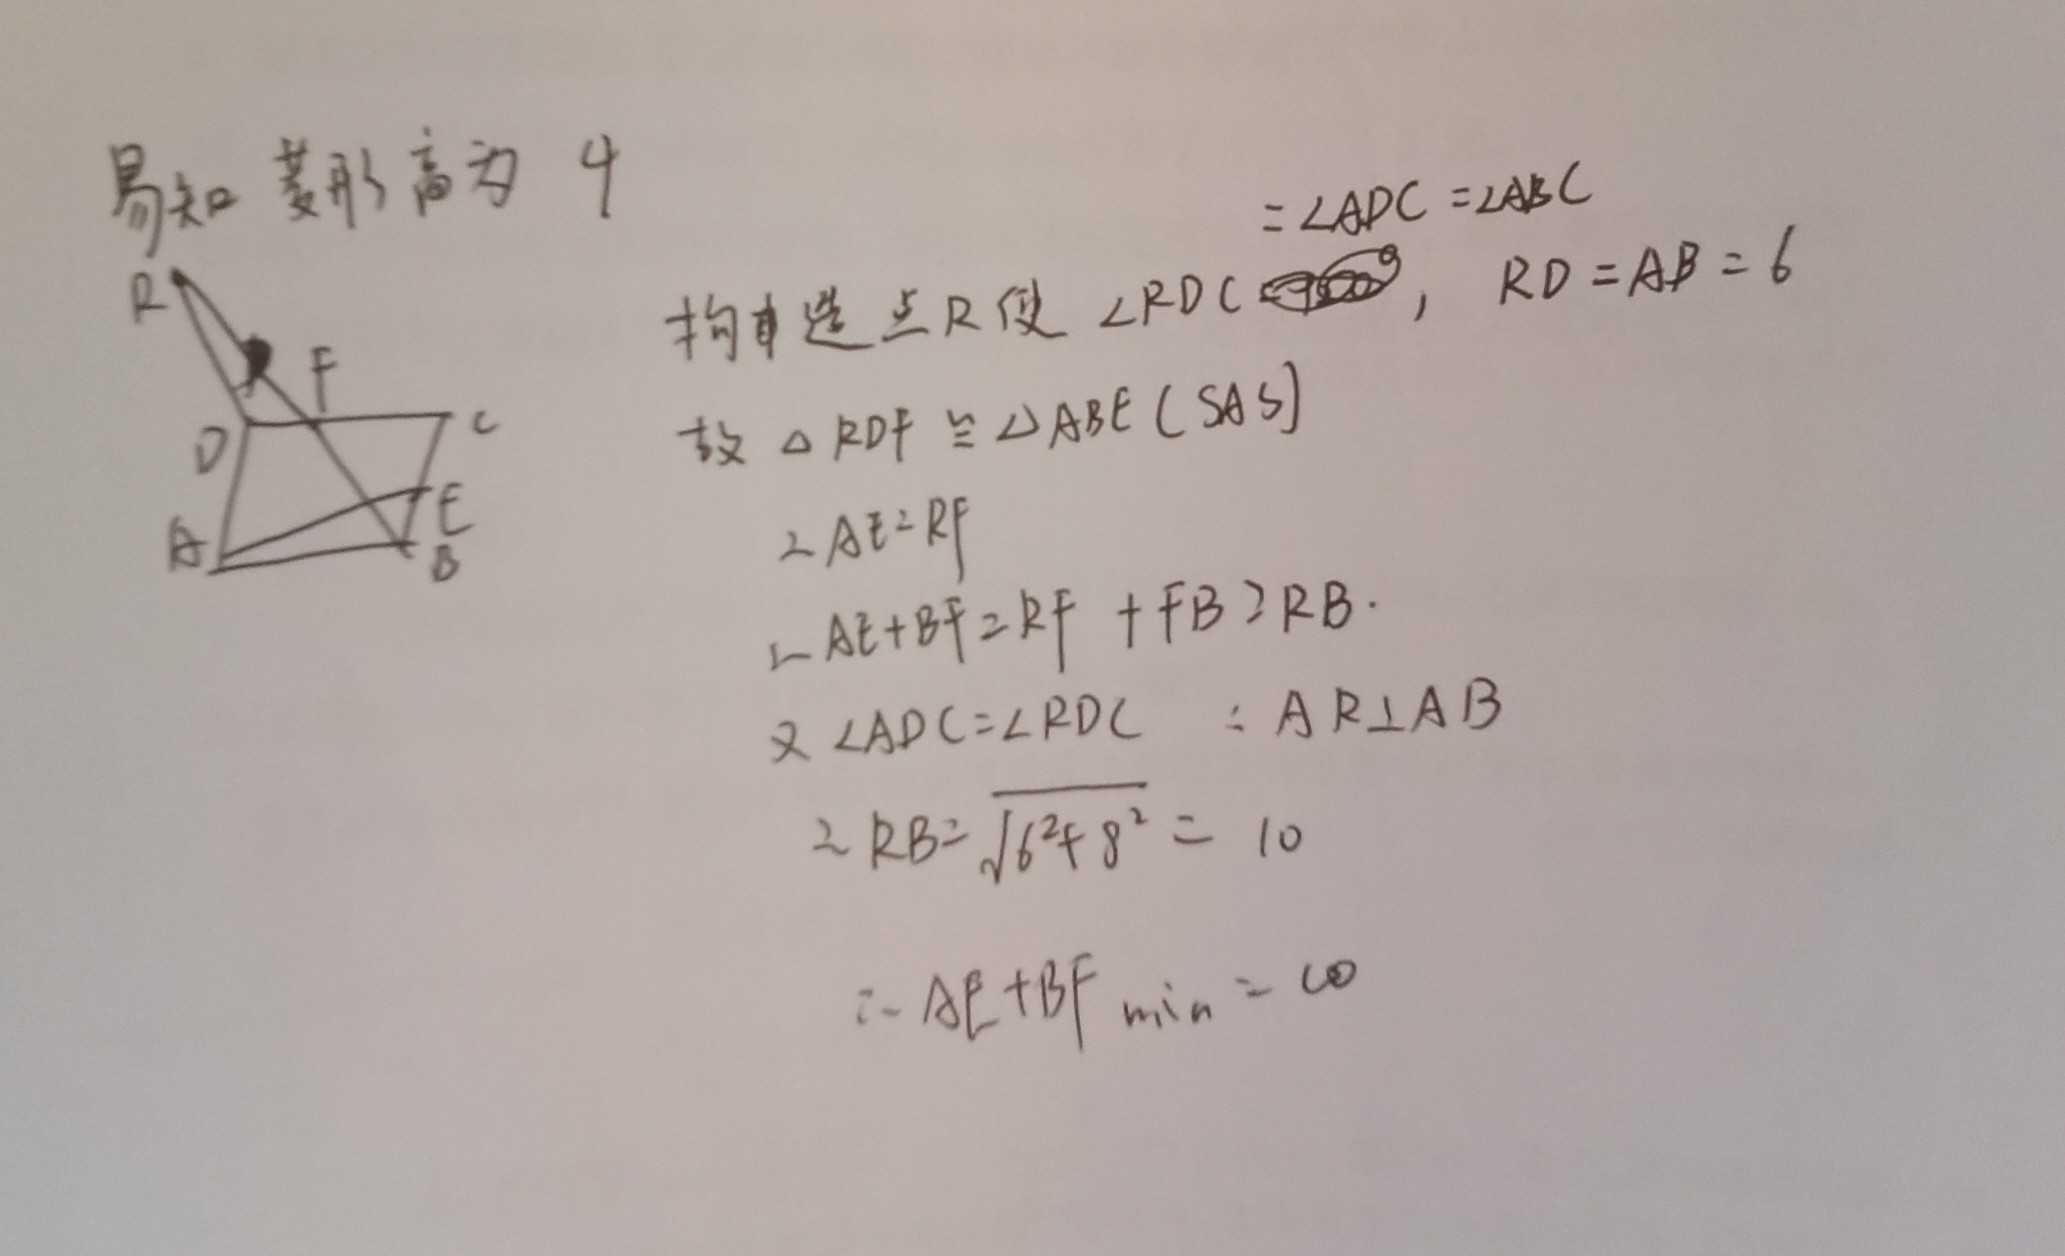 易知菱形高为 4
R
F
D
C
A
E
B
=∠ADC =∠ABC
构造点R使 ∠RDC , RD=AB=6
故 △RDF ≌ △ABE (SAS)
∴ AE=RF
∴ AE+BF=RF+FB≥RB.
又 ∠ADC=∠RDC ∴ AR⊥AB
∴ RB=√6²+8² = 10
∴ AE+BF min = 10